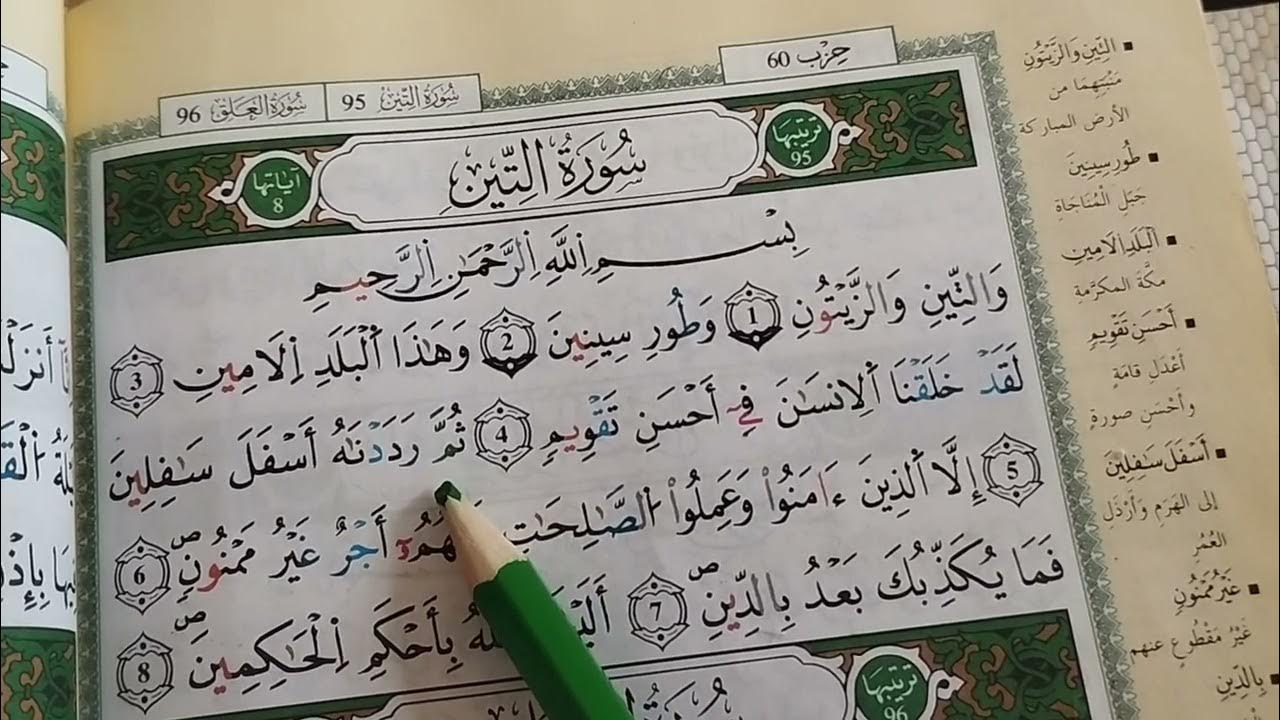 حِزْب 60
سُورَةُ التِّين 95
سُورَةُ العَلَق 96
تَرتيبُها 95
سُورَةُ التِّينِ
آيَاتُها 8
بِسْمِ اِللَّهِ اِلرَّحْمَٰنِ اِلرَّحِيمِ
وَالتِّينِ وَالزَّيْتُونِ 1 وَطُورِ سِينِينَ 2 وَهَٰذَا اَلْبَلَدِ اِلَامِينِ 3
لَقَدْ خَلَقْنَا اَلِانسَٰنَ فِے أَحْسَنِ تَقْوِيمٍ 4 ثُمَّ رَدَدْنَٰهُ أَسْفَلَ سَٰفِلِينَ
5 إِلَّا اَلذِينَ ءَامَنُواْ وَعَمِلُواْ اُلصَّٰلِحَٰتِ أَجْرٌ غَيْرُ مَمْنُونٍ 6
فَمَا يُكَذِّبُكَ بَعْدُ بِالدِّينِ 7 بِأَحْكَمِ اِلْحَٰكِمِينَ 8
تَرتيبُها 96
التِّينِ وَالزَّيْتُونِ
مَنْبَتِهِمَا من
الأرضِ المباركة
طُورِ سِينِينَ
جَبَلِ الْمُنَاجَاةِ
اَلْبَلَدِ اِلَامِينِ
مكّة المكرّمة
أَحْسَنِ تَقْوِيمٍ
أَعْدَلِ قامَةٍ
وأحْسَنِ صورة
أَسْفَلَ سَٰفِلِينَ
إلى الهَرَمِ وأرْذَلِ
العُمُرِ
غَيْرُ مَمْنُونٍ
غَيْرُ مَقْطُوعٍ عنهم
بِالدِّينِ